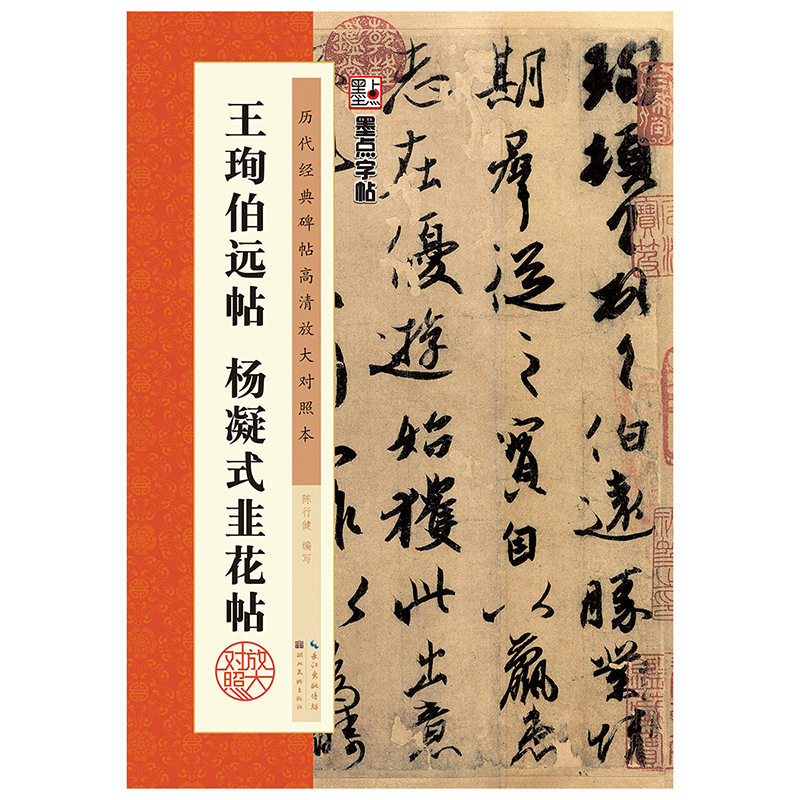 王珣伯远帖 杨凝式韭花帖
放大对照
历代经典碑帖高清放大对照本
陈行健 编写
长江出版传媒
湖北美术出版社
墨点
墨点字帖
珣頓首頓首伯遠勝業情
期群從之寶自以羸患
志在優遊始獲此出意